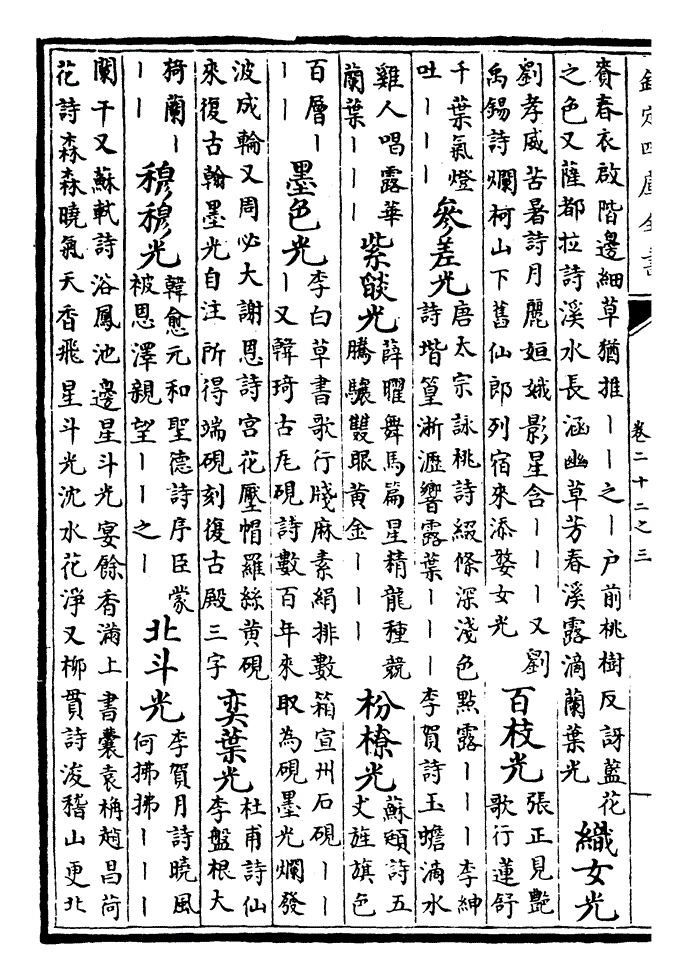 欽定四庫全書
卷二十二之三
賚春衣啟階邊細草猶推丨丨之丨户前桃樹反訝藍花
之色又薩都拉詩溪水長涵幽草芳春溪露滴蘭葉光
織女光
劉孝威苦暑詩月麗姮娥影星含丨丨丨又劉
禹錫詩爛柯山下舊仙郎列宿來添婺女光
百枝光
張正見艷
歌行蓮舒
千葉氣燈
吐丨丨丨
參差光
唐太宗詠桃詩綴條深淺色點露丨丨丨李紳
詩堦篁淅瀝響露葉丨丨丨李賀詩玉蟾滴水
雞人唱露華
蘭葉丨丨丨
紫燄光
薛曜舞馬篇星精龍種競
騰驤雙眼黄金丨丨丨
枌橑光
蘇頲詩五
丈旌旗色
百層丨
丨丨
墨色光
李白草書歌行牋麻素絹排數箱宣州石硯丨丨
丨又韓琦古瓦硯詩數百年來取為硯墨光爛發
波成輪又周必大謝恩詩宮花壓帽羅絲黄硯
來復古翰墨光自注所得端硯刻復古殿三字
奕葉光
杜甫詩仙
李盤根大
猗蘭丨
丨丨
穆穆光
韓愈元和聖德詩序臣蒙
被恩澤親望丨丨之丨
北斗光
李賀月詩曉風
何拂拂丨丨丨
闌干又蘇軾詩浴鳳池邊星斗光宴餘香滿上書囊袁桷趙昌荷
花詩森森曉氣天香飛星斗光沈水花淨又柳貫詩浚稽山更北